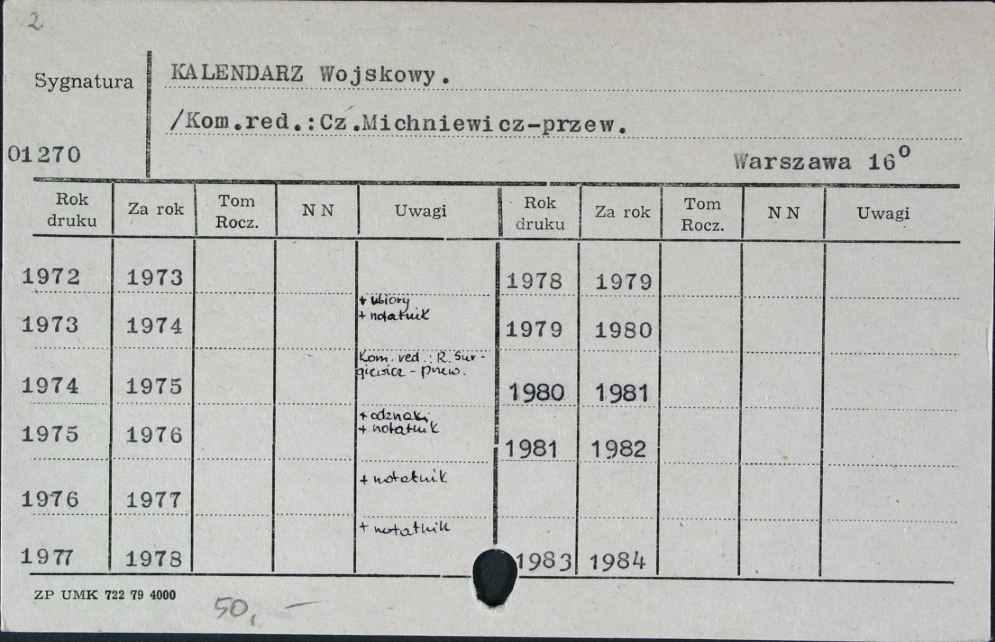 2
Sygnatura KALENDARZ Wojskowy.
/Kom.red.:Cz.Michniewicz-przew.
01270 Warszawa 16º
Rok druku Za rok Tom Rocz. NN Uwagi Rok druku Za rok Tom Rocz. NN Uwagi
1972 1973 1978 1979
+ ubiory
+ notatnik
1973 1974 1979 1980
Kom. red.: R. Sur-
- przew.
1974 1975 1980 1981
+ odznaki
+ notatnik
1975 1976 1981 1982
+ notatnik
1976 1977
+ notatnik
1977 1978 1983 1984
ZP UMK 722 79 4000
50,-